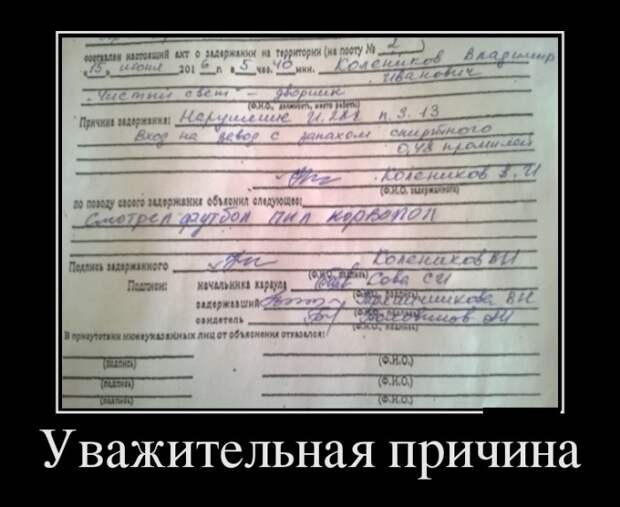 составлен настоящий акт о задержании на территории (на посту № 2)
"15" июня 2016 г. в 5 час. 40 мин. Колеников Владимир
Иванович
"Чистый свет" - дворник
(Ф.И.О., должность, место работы)
Причина задержания: Нарушение п.3.13
Вход на завод с запахом спиртного
0,48 промилей
Колеников В.И
(Ф.И.О. задержанного)
по поводу своего задержания объяснил следующее:
Смотрел футбол пил корвопол
Подпись задержанного Колеников ВИ
(Ф.И.О., подпись)
Подписи: начальника караула Сова СИ
(Ф.И.О., подпись)
задержавший ВИ
(Ф.И.О., подпись)
свидетель
(Ф.И.О., подпись)
В присутствии нижеуказанных лиц от объяснения отказался:
(подпись) (Ф.И.О.)
(подпись) (Ф.И.О.)
(подпись) (Ф.И.О.)
Уважительная причина